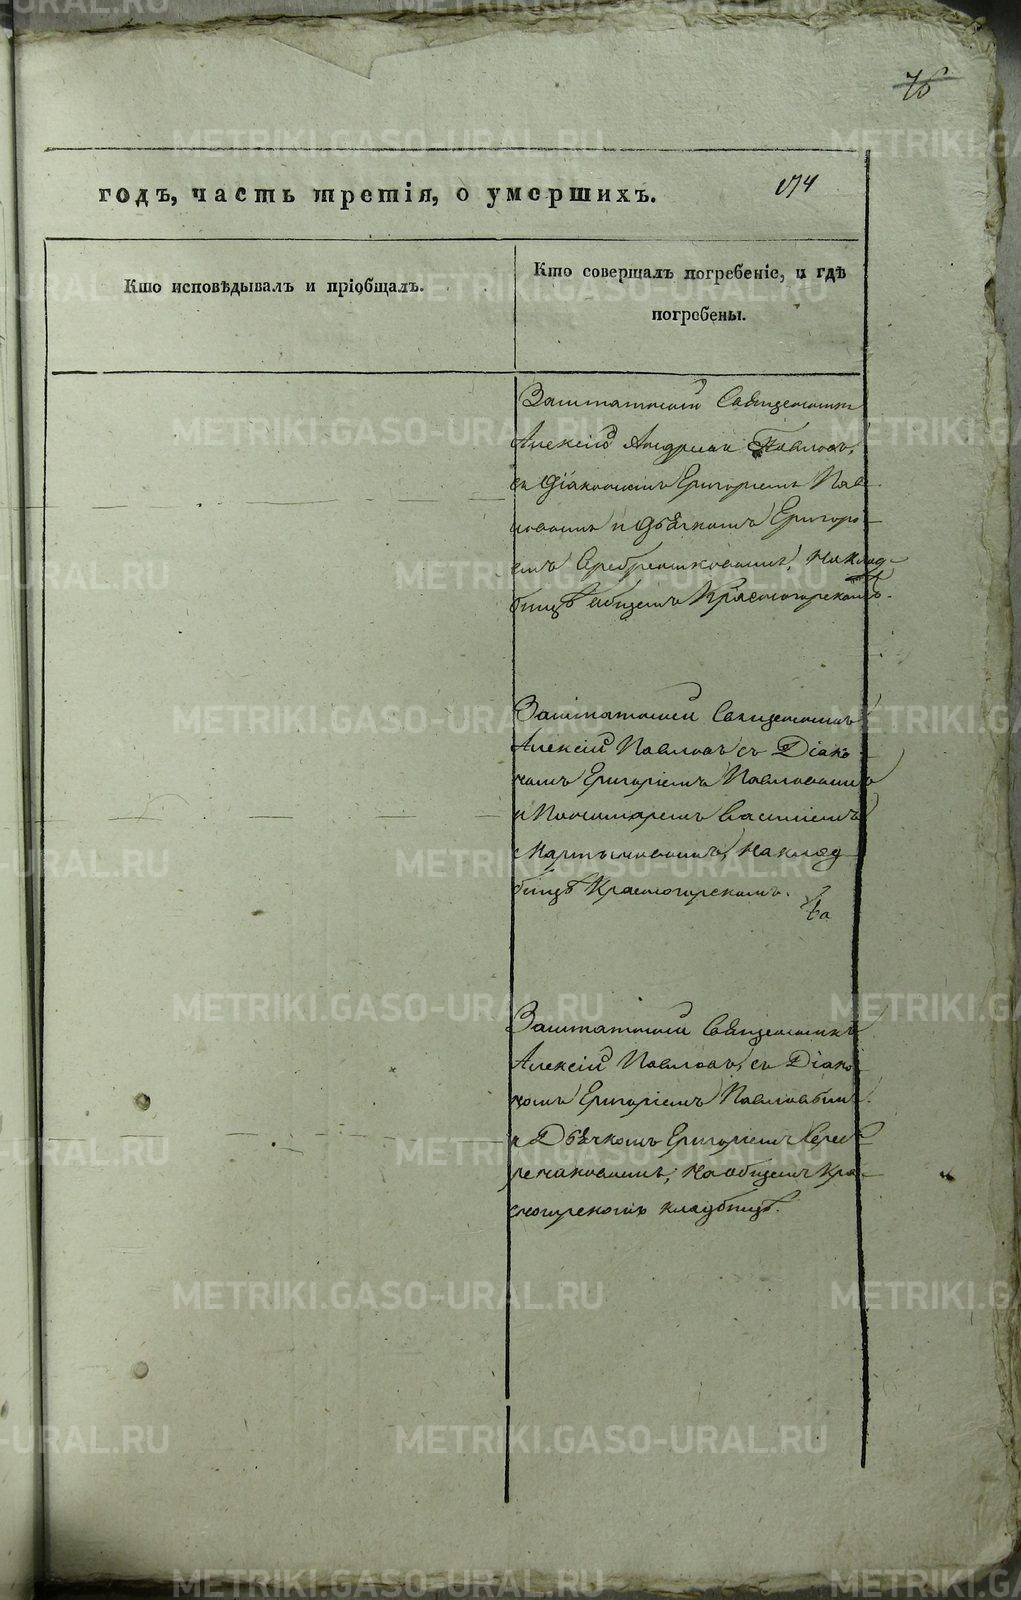 76
174
годъ, часть третія, о умершихъ.
Кто исповѣдывалъ и пріобщалъ.
Кто совершалъ погребеніе, и гдѣ
погребены.
Заштатный Священникъ
Алексій Андреевъ Павловъ,
съ Діакономъ Григоріемъ Пав
ловымъ и Дьячкомъ Григорі
емъ Серебренниковымъ, на клад-
бищѣ общемъ Красногорскомъ.
Заштатный Священникъ
Алексій Павловъ съ Діако
номъ Григоріемъ Павловымъ
и Пономаремъ Василіемъ
Мартыновымъ, на клад
бищѣ Красногорскомъ.
Заштатный Священникъ
Алексій Павловъ, съ Діако
номъ Григоріемъ Павловымъ
и Дьячкомъ Григоріемъ Сереб
рениковымъ, на общемъ Кра
сногорскомъ кладбищѣ.
METRIKI.GASO-URAL.RU